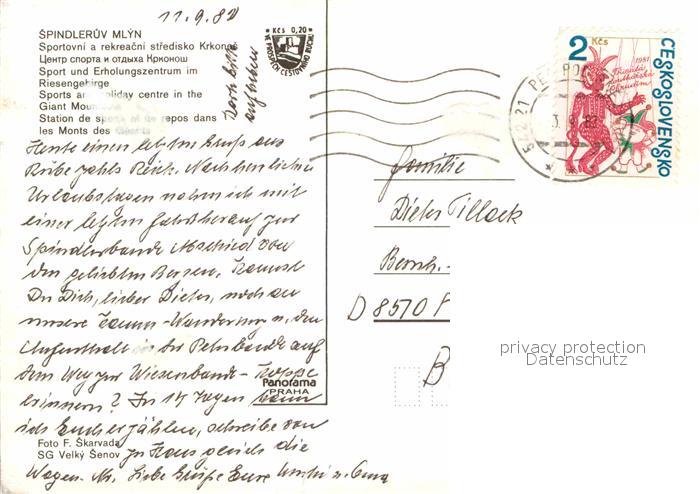 11.9.82
ŠPINDLERŮV MLÝN
Sportovní a rekreační středisko Krkonoš
Центр спорта и отдыха Крконош
Sport und Erholungszentrum im
Riesengebirge
Sports an holiday centre in the
Giant Mountains
Station de sports et de repos dans
les Monts des Géants
Karte bitte
aufheben
Kčs 0,20
VE PROSPĚCH CESTOVNÍHO RUCHU
Heute einen letzten Gruß aus
Rübezahls Reich. Nach herrlichen
Urlaubstagen nahm ich mit
einer letzten
Spindlerbaude Abschied von
den geliebten Bergen. Kannst
Du Dich, lieber Dieter, noch an
unsere Wanderung u. den
Aufenthalt in der Peterbaude auf
dem Weg zur Wiesenbaude - Koppe
erinnern? In 14 Tagen kann
ich Euch erzählen, schreibe von
zu Haus gleich die
Wagen-Nr. Liebe Grüße Eure u. Oma
Panorama
PRAHA
Foto F. Škarvada
SG Velký Šenov
Familie
Dieter Tillack
Bernh.-
D 8570 P
B
512 21 PEC POD
3.9.82
2 Kčs
1981
ČESKOSLOVENSKO
Chrudim
privacy protection
Datenschutz